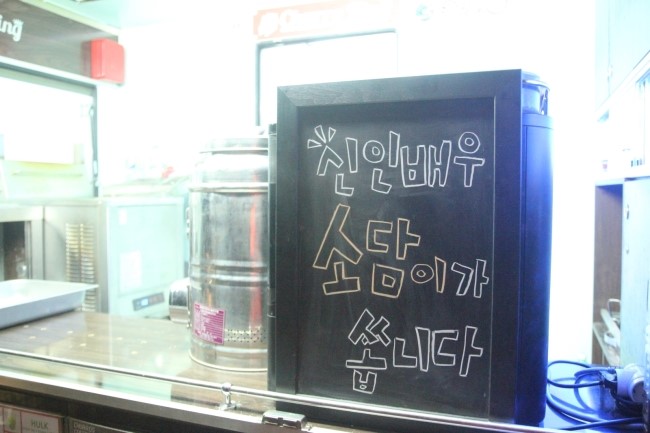 ing
신인배우
소담이가
쏩니다
HULK